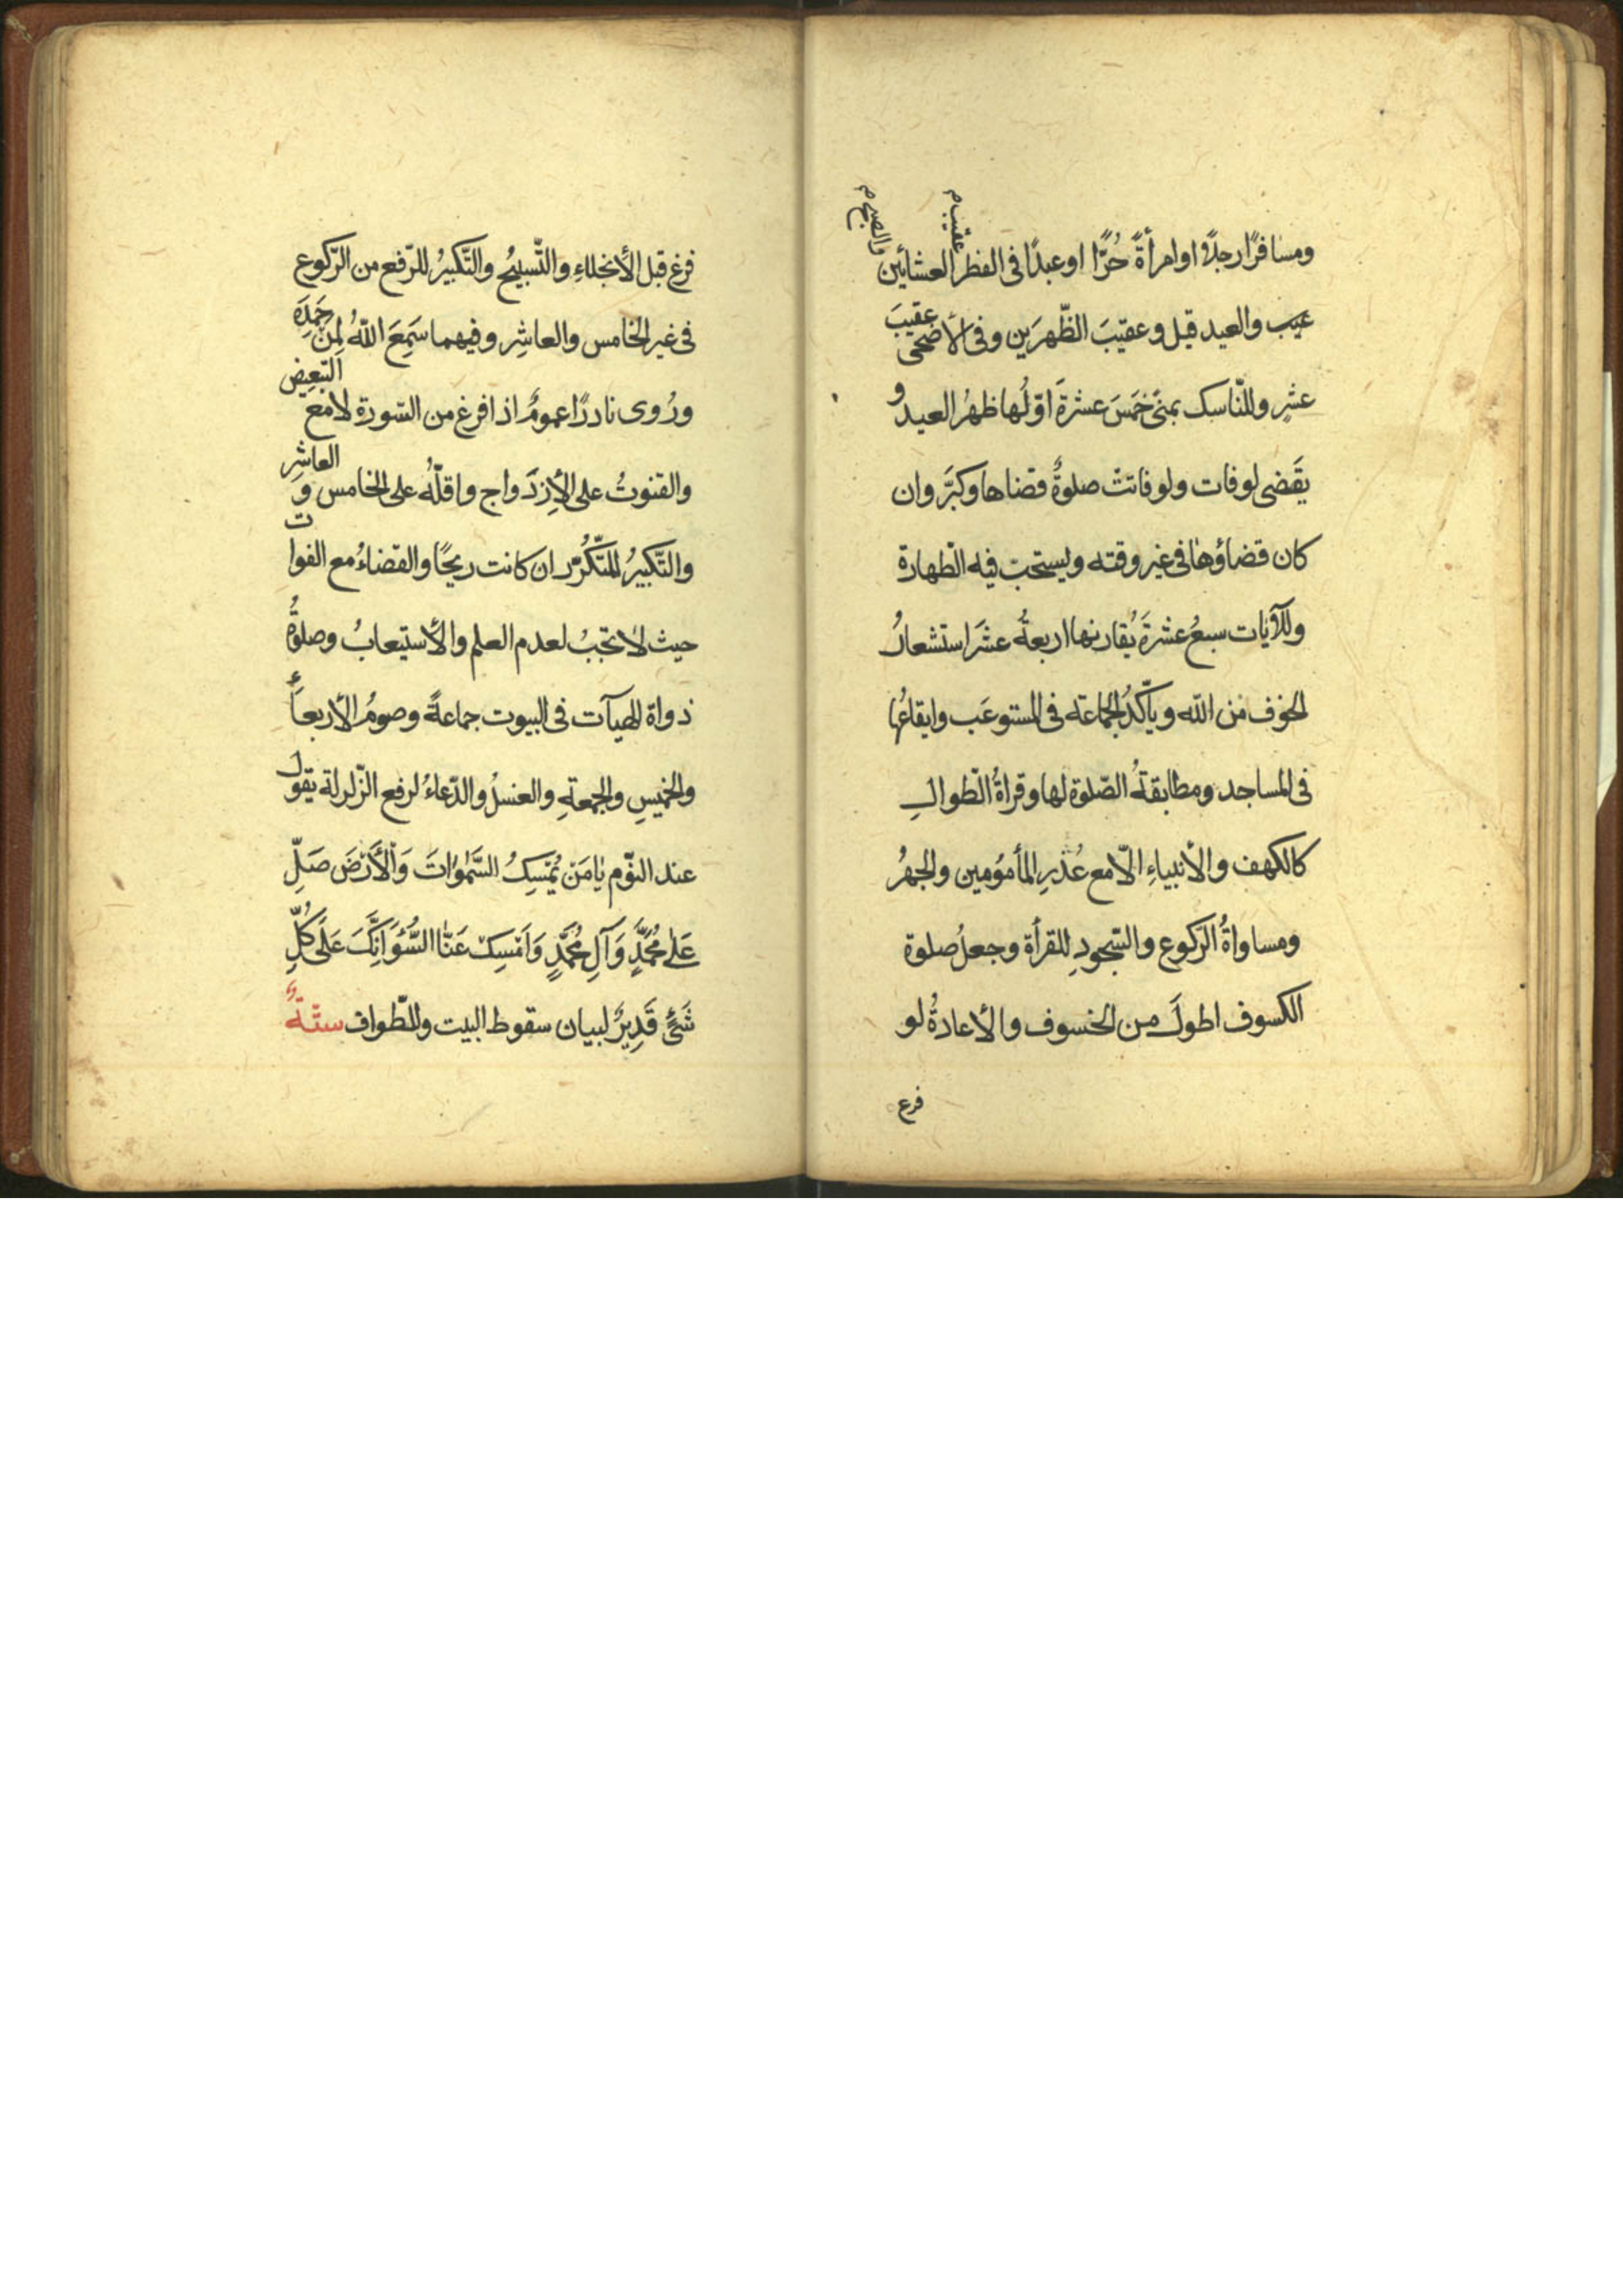 ومسافرًا رجلًا او امرأةً حُرًّا او عبدًا فى الفطر عقيب م العشائين والصبح م
والعيد قيل وعقيبَ الظّهرَين وفى الأضحى عقيبَ
عشرٍ وللنّاسك بمنىً خمَسَ عشرةَ اوّلُها ظهرُ العيد و
يَقضى لو فات ولو فاتتْ صلوةٌ قضاها وكبّرَ وان
كان قضاؤها فى غير وقته ويستحبّ فيه الطّهارة
وللآيات سبعُ عشرةَ يُقارنها اربعةُ عشَر استشعارُ
الخوف من الله ويأكّدُ الجماعة فى المستوعَب وايقاعُها
فى المساجد ومطابقةُ الصّلوة لها وقراةُ الطّوالِ
كالكهف والأنبياءِ الّا مع عُذرِ المأمؤمين والجهرُ
ومساواةُ الرّكوع والسّجودِ للقرأة وجعلُ صلوة
الكسوف اطولَ من الخسوف والأعادةُ لو
فرغ
فرغ قبل الأنجلاءِ والتّسبيحُ والتّكبيرُ للرّفع من الرّكوع
فى غير الخامس والعاشِر وفيهما سَمِعَ اللهُ لِمَنْ حَمِدَه
ورُوى نادرًا عمومُ اذا فرغ من السّورة لا مع التّبعيض
والقنوتُ على الأِزدَواج واقلّهُ على الخامس وَ العاشر
والتّكبيرُ للمتّكرّر ان كانت ريحًا والقضاءُ مع الفوات
حيث لا تجبُ لعدم العلم والأستيعابُ وصلوةُ
ذواة الهيآت فى البيوت جماعةً وصومُ الأربعاءِ
والخميسِ والجمعةِ والغسلُ والدّعاءُ لرفع الزّلزلة يقول
عند النوّم يٰا مَنْ يُمْسِكُ السَّمٰوٰاتَ وَالْأَرْضَ صَلِّ
عَلىٰ مُحَمَّدٍ وَآلِ مُحَمَّدٍ وَاَمْسِكْ عَنّٰا السُّوَٓءَ اِنَّكَ عَلَى كُلِّ
شَىْءٍ قَدِيرٌ لبيان سقوط البيت وللطّواف ستّةٌ